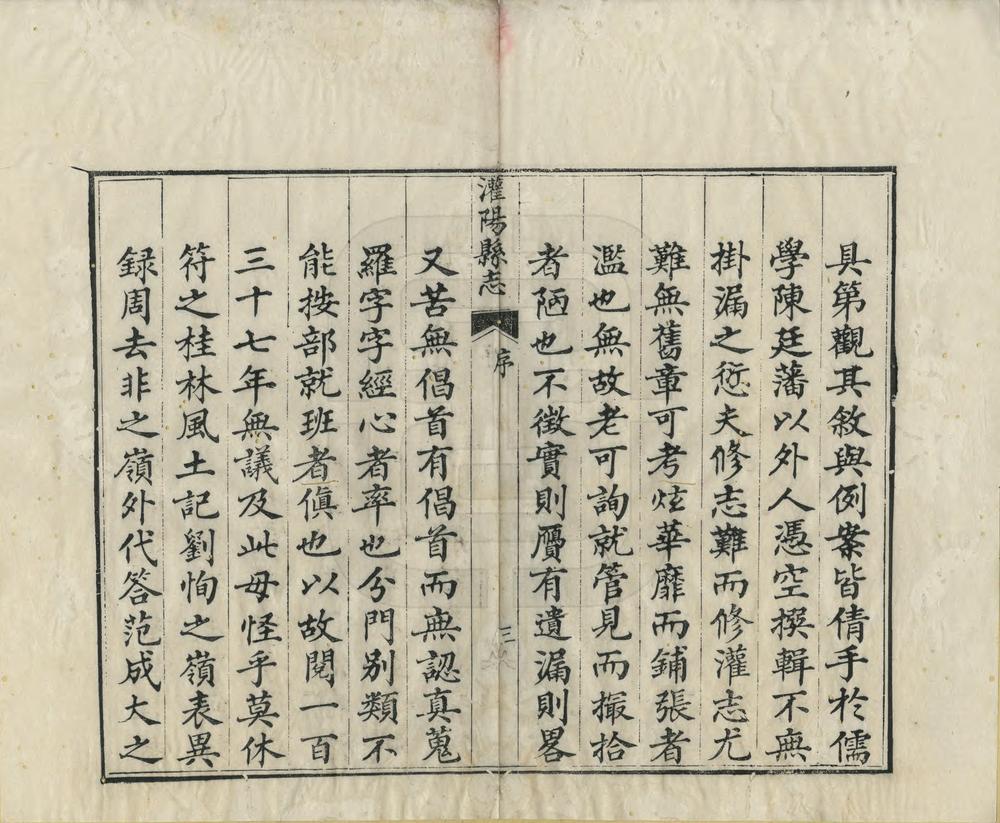 具第觀其敘與例案皆倩手於儒
學陳廷藩以外人憑空撰輯不無
掛漏之愆夫修志難而修灌志尤
難無舊章可考炫華靡而鋪張者
濫也無故老可詢就管見而撮拾
者陋也不徵實則贋有遺漏則畧
灌陽縣志
序
三
又苦無倡首有倡首而無認真蒐
羅字字經心者率也分門别類不
能按部就班者傎也以故閱一百
三十七年無議及此毋怪乎莫休
符之桂林風土記劉恂之嶺表異
録周去非之嶺外代答范成大之